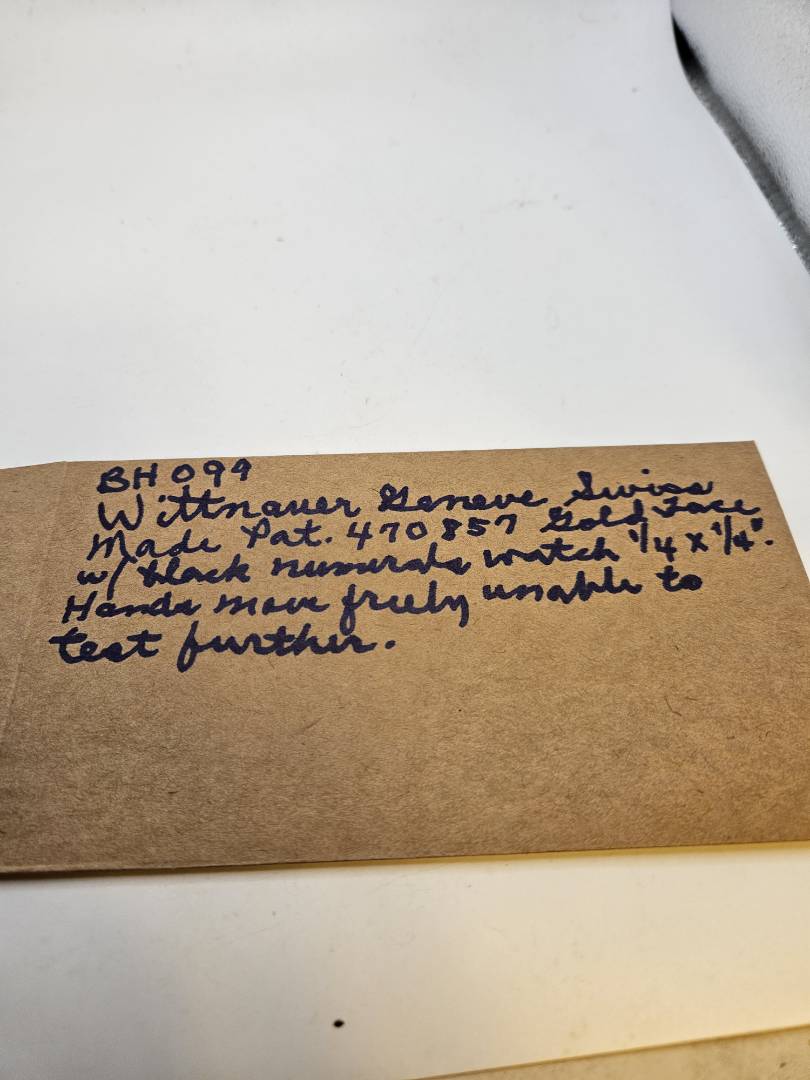 BH 099
Wittnauer Geneve Swiss
Made Pat. 470857 Gold Face
w/ black numerals watch 1/4 x 1/4".
Hands move freely unable to
test further.